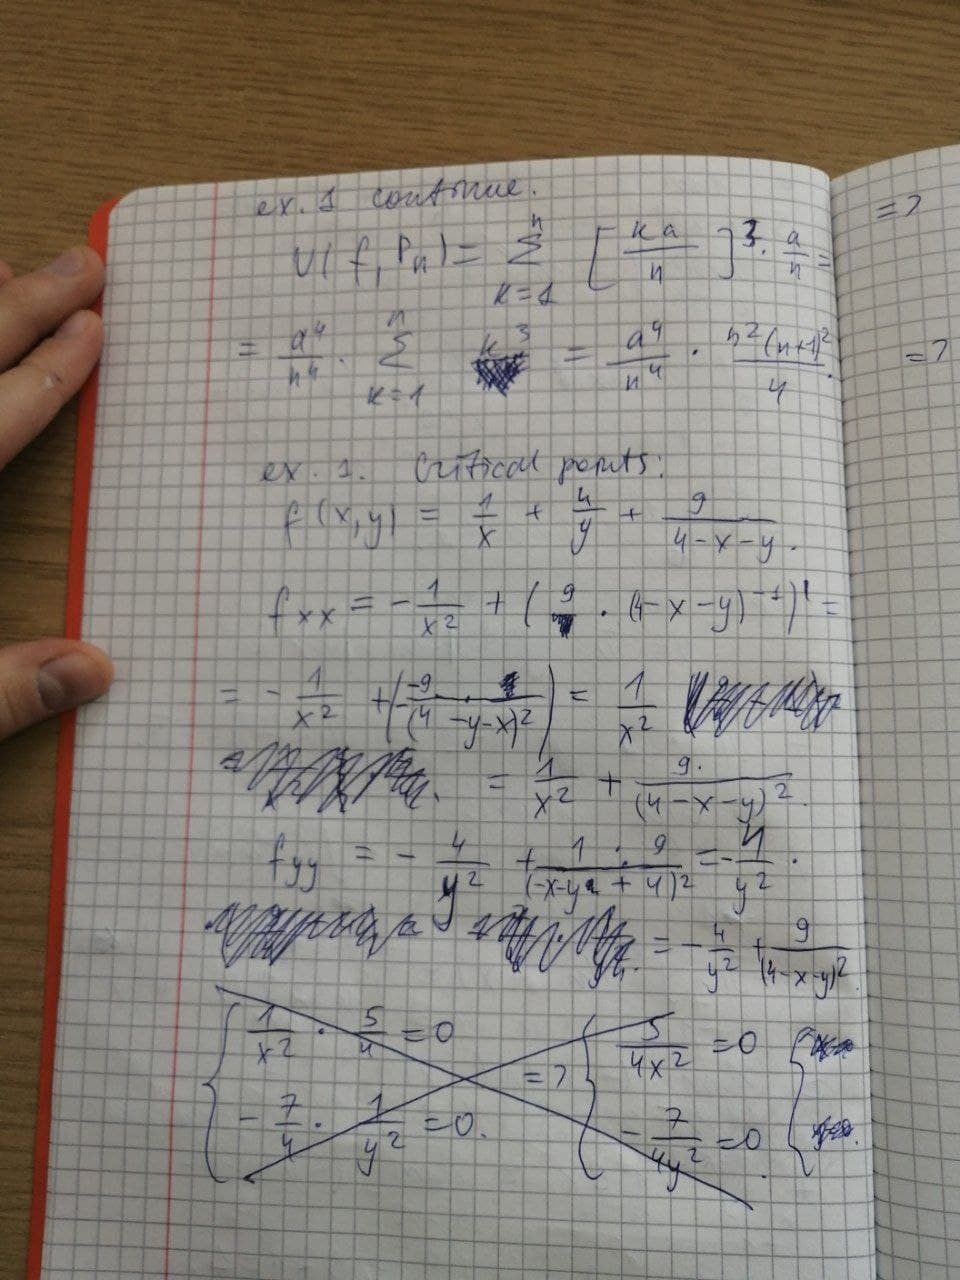 ex. 1 continue.
U(f, Pn) = Σ_{k=1}^{n} [ka/n]^3 · a/n =
= a^4/n^4 · Σ_{k=1}^{n} k^3 = a^4/n^4 · n^2(n+1)^2/4.
ex. 1. Critical points:
f(x,y) = 1/x + 4/y + 9/(4-x-y).
fxx = -1/x^2 + (9 · (4-x-y)^{-1})' =
= -1/x^2 + (-9/(4-y-x)^2) = 1/x^2
= 1/x^2 + 9·/(4-x-y)^2.
fyy = -4/y^2 + 1·9/(-x-y+4)^2 = -4/y^2 ·
= -4/y^2 + 9/(4-x-y)^2.
{ 1/x^2 · 5/4 = 0 => { 5/4x^2 = 0 {
-7/4 · 1/y^2 = 0. -7/4y^2 = 0
=>
=>